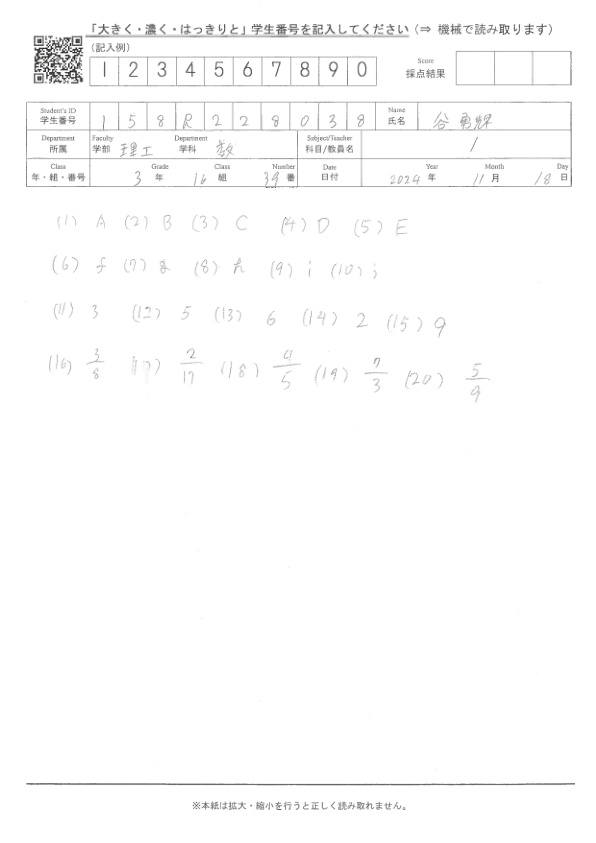 「大きく・濃く・はっきりと」学生番号を記入してください（⇒ 機械で読み取ります）
（記入例）
1 2 3 4 5 6 7 8 9 0
Score
採点結果
Student's ID
学生番号 1 5 8 R 2 2 8 0 3 8
Name
氏名 谷 勇輝
Department
所属
Faculty
学部 理工
Department
学科 数
Subject/Teacher
科目/教員名 /
Class
年・組・番号
Grade
3 年
Class
16 組
Number
39 番
Date
日付
Year
2024 年
Month
11 月
Day
18 日
(1) A (2) B (3) C (4) D (5) E
(6) f (7) g (8) h (9) i (10) j
(11) 3 (12) 5 (13) 6 (14) 2 (15) 9
(16) 3/8 (17) 2/17 (18) 4/5 (19) 7/3 (20) 5/9
※本紙は拡大・縮小を行うと正しく読み取れません。